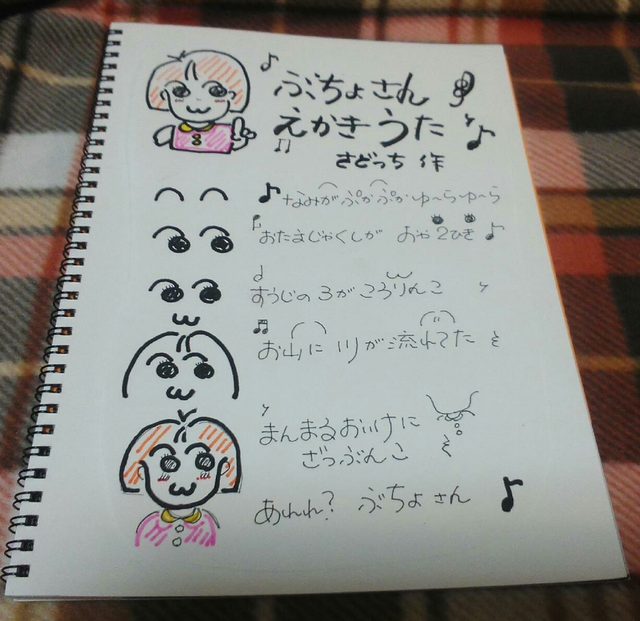 ぶちょさん
えかきうた
さどっち 作
なみが ぷか ぷか ゆ〜らゆ〜ら
おたまじゃくしが おや 2ひき
すうじの 3が ころりんこ
お山に 川が 流れてた
まんまるおいけに
ざっぶんこ
あれれ? ぶちょさん